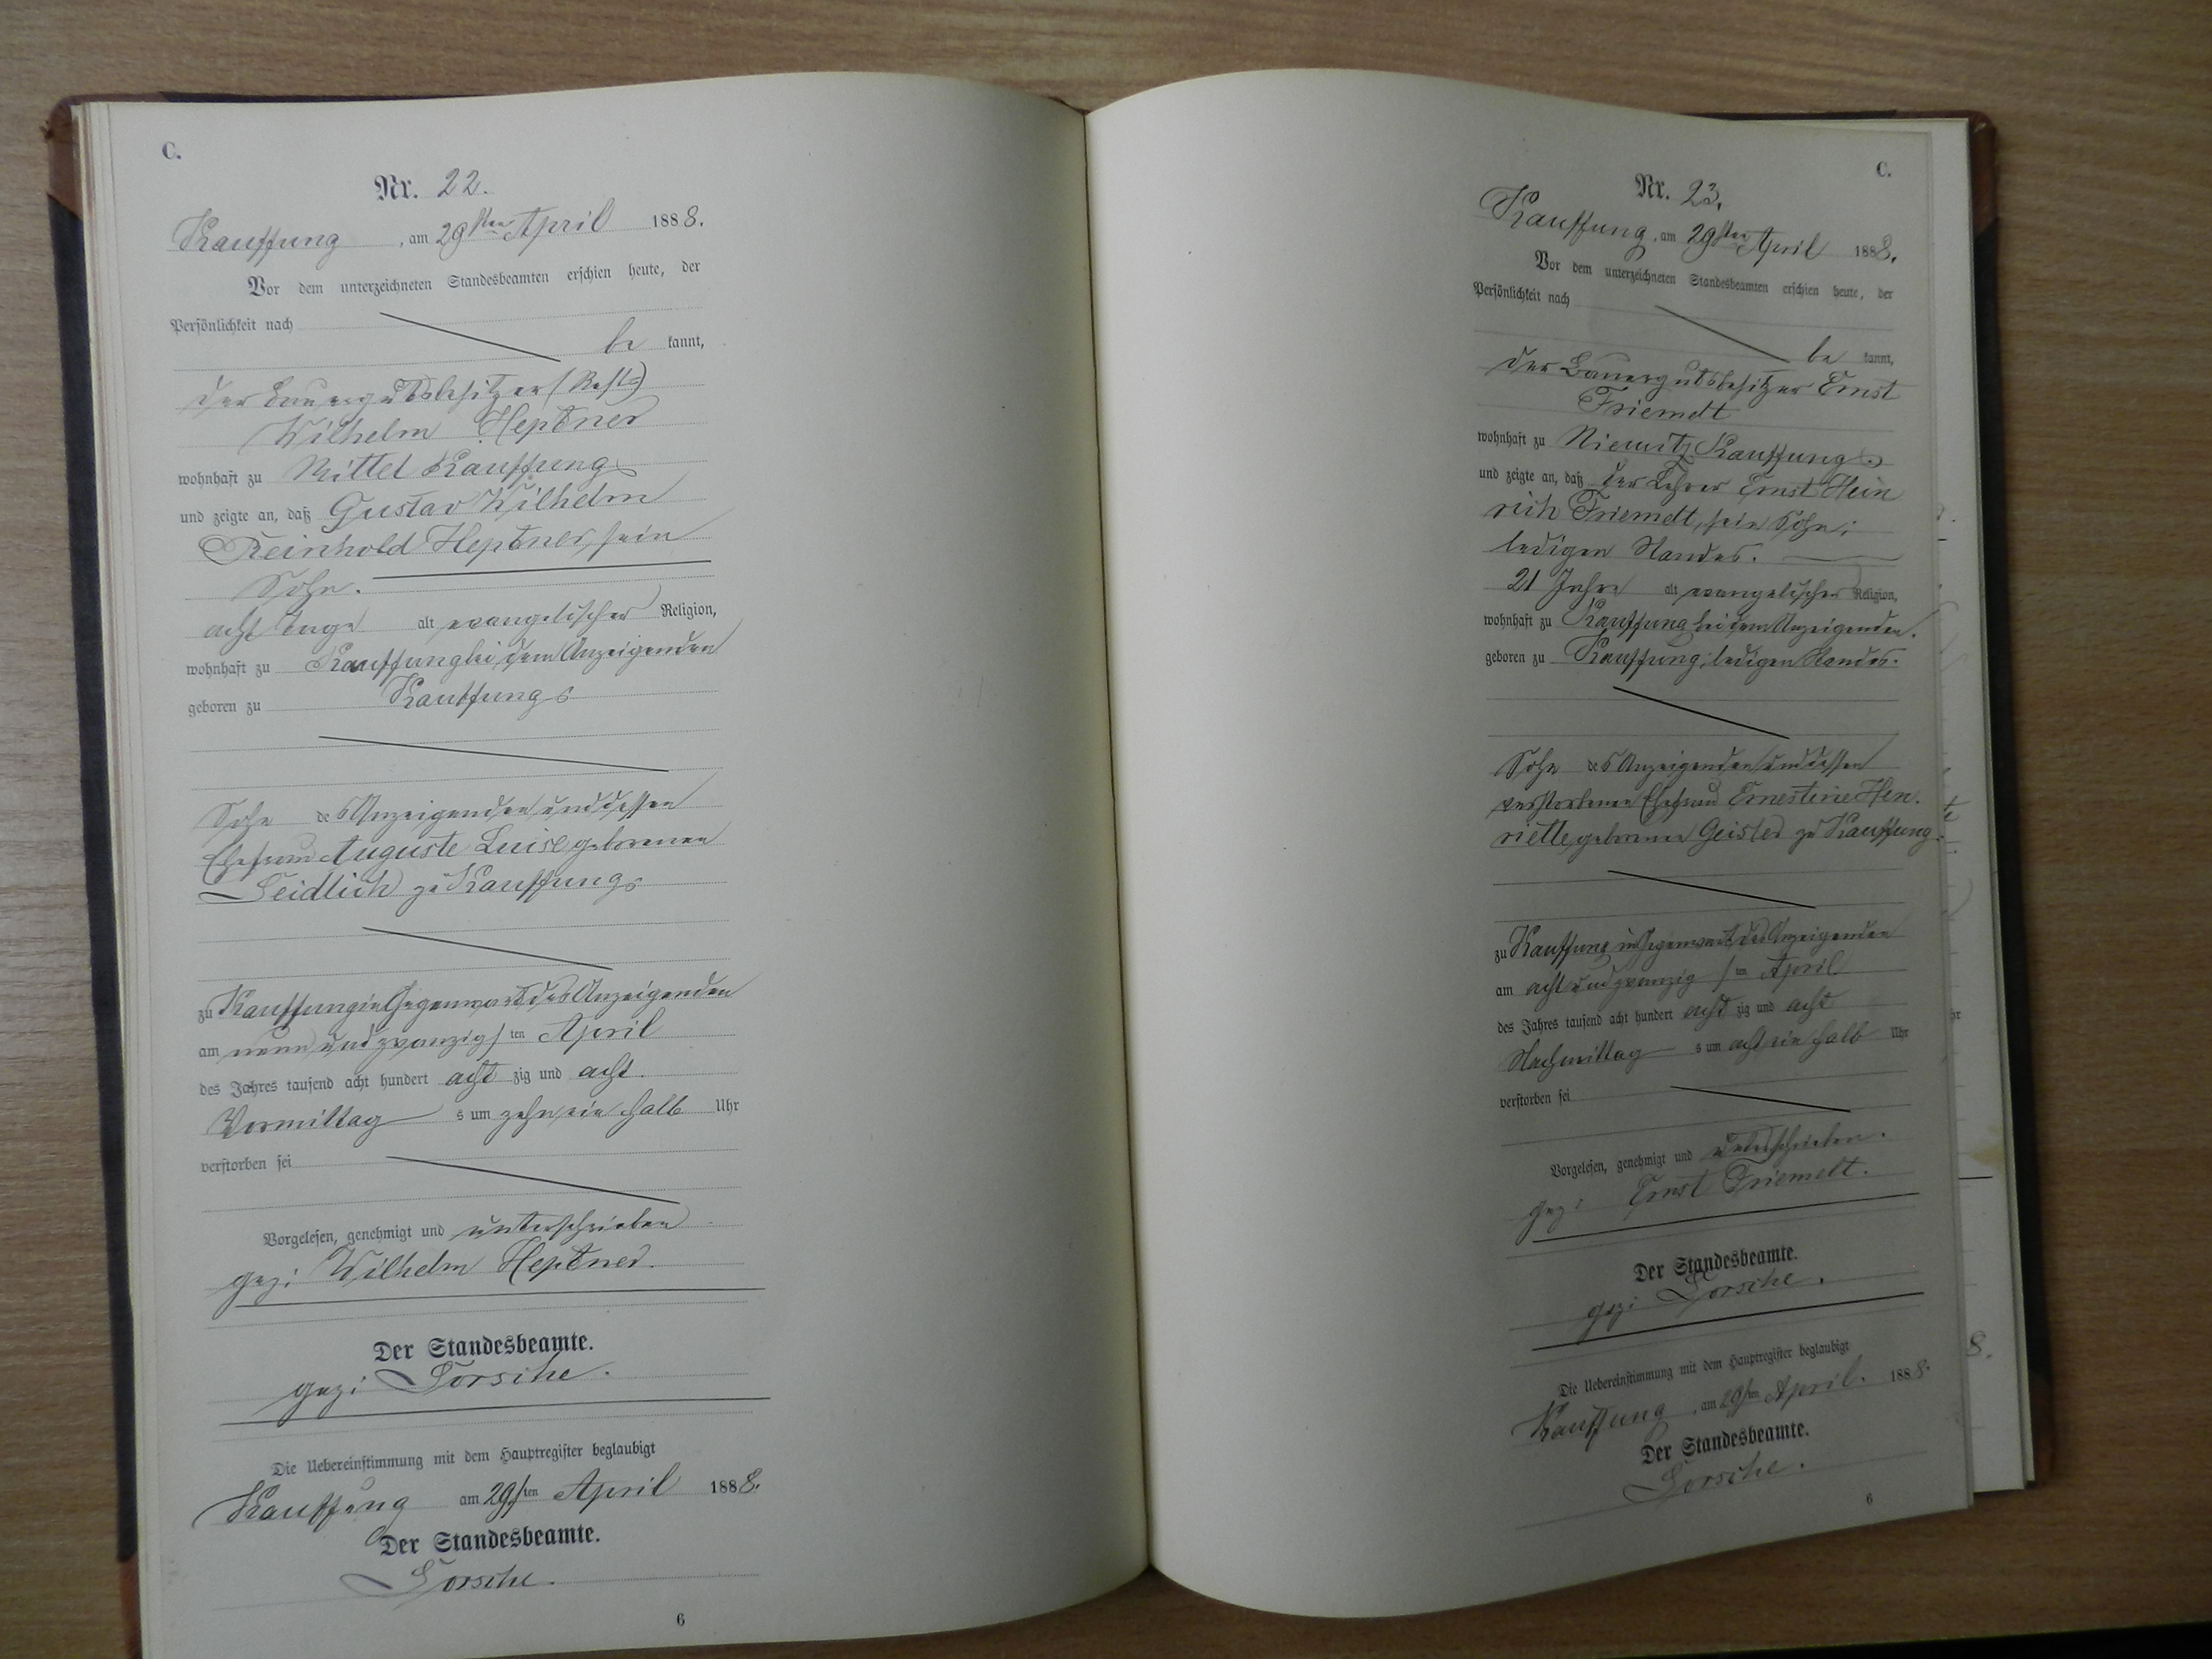 C.
Nr. 22.
Kauffung, am 29sten April 1888.
Vor dem unterzeichneten Standesbeamten erschien heute, der
Persönlichkeit nach
be kannt,
der Bauergutsbesitzer (Rest=)
Wilhelm Heptner
wohnhaft zu Mittel Kauffung
und zeigte an, daß Gustav Wilhelm
Reinhold Heptner, sein
Sohn.
acht Tage alt evangelischer Religion,
wohnhaft zu Kauffung bei dem Anzeigenden
geboren zu Kauffung
Sohn des Anzeigenden und dessen
Ehefrau Auguste Luise geborenen
Seidlich zu Kauffung
zu Kauffung in Gegenwart des Anzeigenden
am neun und zwanzig sten April
des Jahres tausend acht hundert acht zig und acht.
Vormittag s um zehn ein halb Uhr
verstorben sei
Vorgelesen, genehmigt und unterschrieben
gez: Wilhelm Heptner.
Der Standesbeamte.
gez: Torsche.
Die Uebereinstimmung mit dem Hauptregister beglaubigt
Kauffung am 29sten April 1888.
Der Standesbeamte.
Torsche.
6
C.
Nr. 23.
Kauffung, am 29sten April 1888.
Vor dem unterzeichneten Standesbeamten erschien heute, der
Persönlichkeit nach
be kannt,
der Bauergutsbesitzer Ernst
Friemelt
wohnhaft zu Niemitz Kauffung
und zeigte an, daß der Lehrer Ernst Hein
rich Friemelt, sein Sohn;
ledigen Standes.
21 Jahre alt evangelischer Religion,
wohnhaft zu Kauffung bei dem Anzeigenden.
geboren zu Kauffung; ledigen Standes.
Sohn des Anzeigenden und dessen
verstorbenen Ehefrau Ernestine Hen.
riette, geborenen Geisler zu Kauffung.
zu Kauffung in Gegenwart des Anzeigenden
am acht und zwanzig sten April
des Jahres tausend acht hundert acht zig und acht
Nachmittag s um acht ein halb Uhr
verstorben sei
Vorgelesen, genehmigt und unterschrieben.
gez: Ernst Friemelt.
Der Standesbeamte.
gez: Torsche.
Die Uebereinstimmung mit dem Hauptregister beglaubigt
Kauffung, am 29sten April. 1888.
Der Standesbeamte.
Torsche.
6
8.